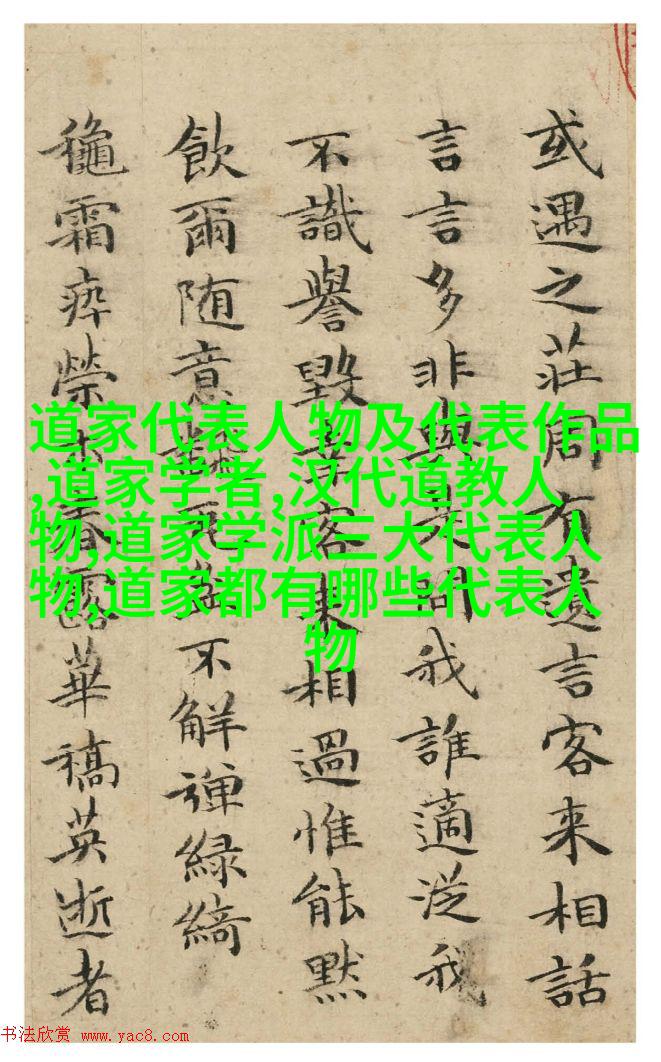 或遇之莊周有遺言客来相話
言言多非與問我誰適従我
不識譽毀客来相過惟能默
飲爾随意不解彈緑綺
龝霜瘁榮木春露華稿英逝者
道家代表人物及代表作品
,道家学者,汉代道教人
物,道家学派三大代表人
物,道家都有哪些代表人
物
书法欣赏 www.yac8.com